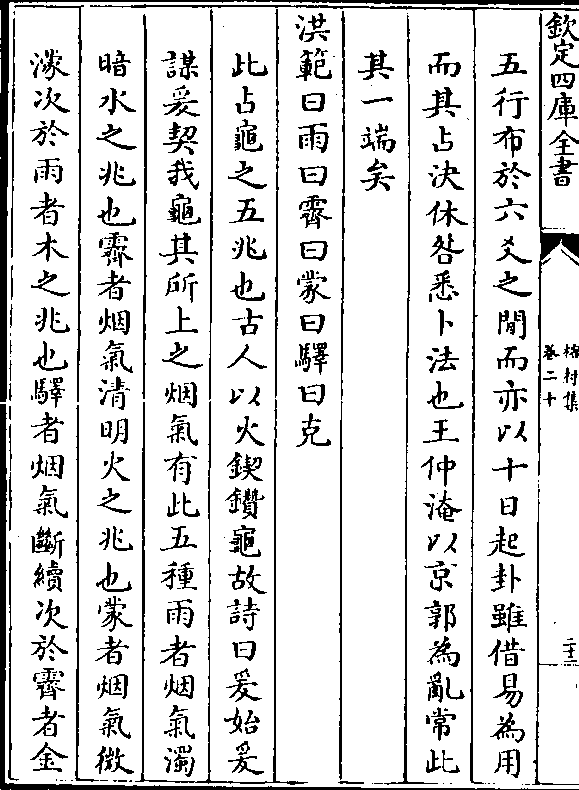 欽定四庫全書
榕村集
卷二十
五行布於六爻之間而亦以十日起卦雖借易為用
而其占決休咎悉卜法也王仲淹以京郭為亂常此
其一端矣
洪範曰雨曰霽曰蒙曰驛曰克
此占龜之五兆也古人以火鍥鑽龜故詩曰爰始爰
謀爰契我龜其所上之烟氣有此五種雨者烟氣濁
暗水之兆也霽者烟氣清明火之兆也蒙者烟氣微
濛次於雨者木之兆也驛者烟氣斷續次於霽者金